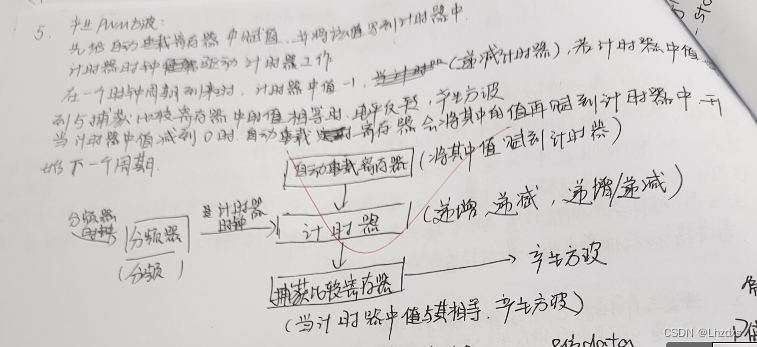 5. 产生PWM方波:
先给自动重载寄存器中赋值,并将该值写到计时器中.
计时器时钟驱动计时器工作
在一个时钟周期到来时,计时器中值-1,(递减计时器),若计时器中值
到与捕获/比较寄存器中的值相等时,电平反转,产生方波
当计时器中值减到0时,自动重载寄存器会将其中的值再赋到计时器中,开
始下一个周期.
自动重载寄存器 (将其中值赋到计时器)
分频器
时钟
分频器
(分频)
计时器
时钟
计时器 (递增、递减,递增/递减)
捕获比较寄存器 产生方波
(当计时器中值与其相等,产生方波)
CSDN @Lhzdzs